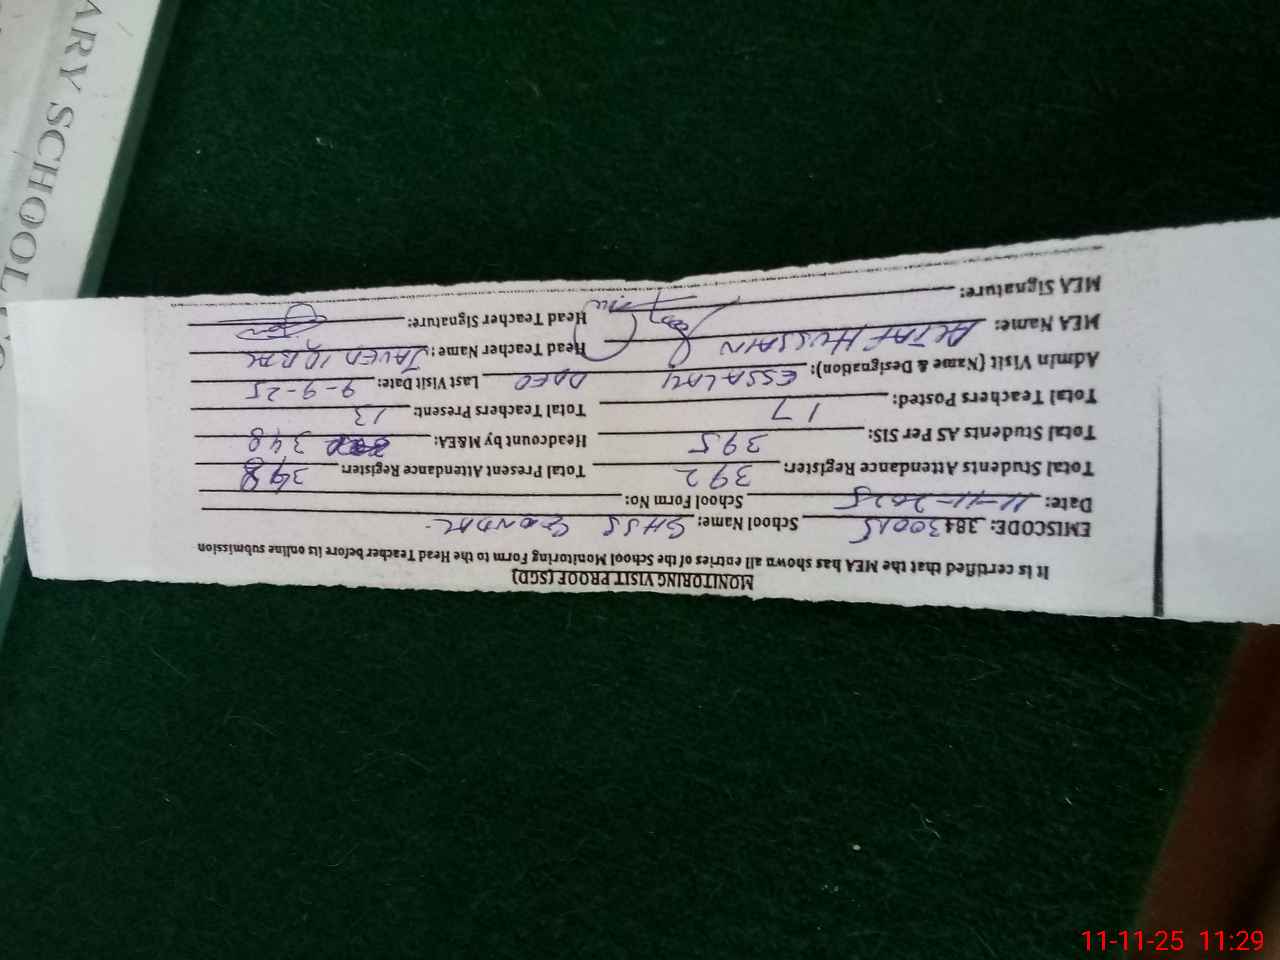 MONITORING VISIT PROOF (SGD)
It is certified that the MEA has shown all entries of the School Monitoring Form to the Head Teacher before its online submission
EMISCODE: 38430015 School Name: GHSS GONDAL
Date: 11-11-2025 School Form No:
Total Students Attendance Register: 392 Total Present Attendance Register: 348
Total Students AS Per SIS: 395 Headcount by M&EA: 348
Total Teachers Posted: 17 Total Teachers Present: 13
Admin Visit (Name & Designation): DDEO Last Visit Date: 9-9-25
MEA Name: ALTAF HUSSAIN Head Teacher Name: JAVED IQBAL
MEA Signature: Head Teacher Signature:
ARY SCHOOL
11-11-25 11:29